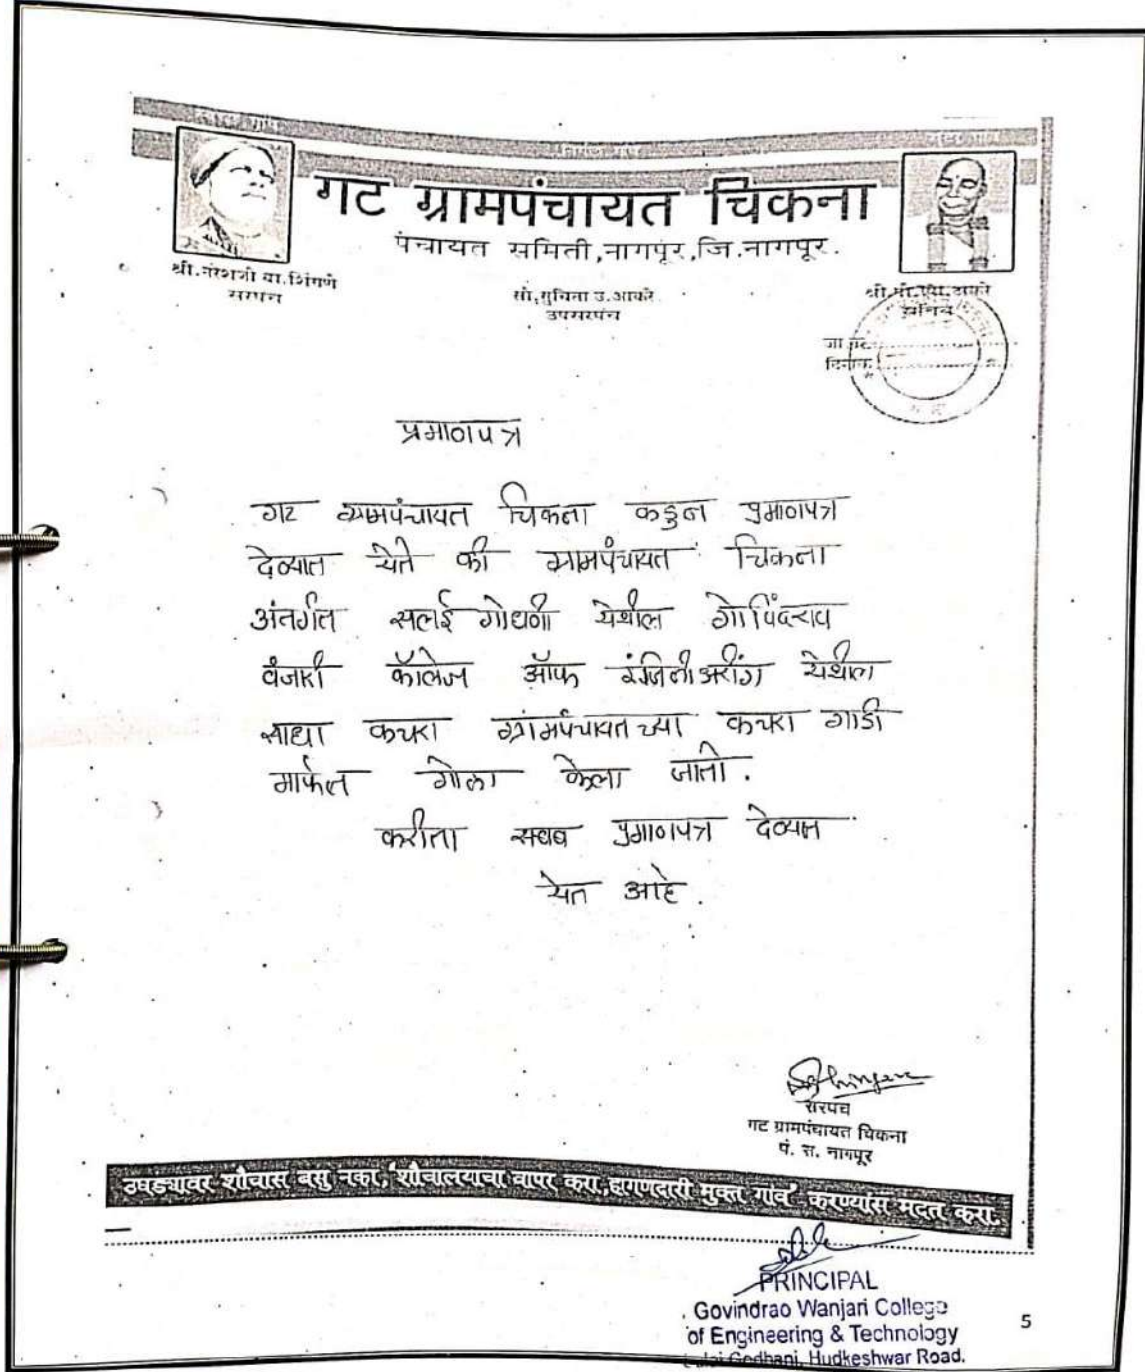 सुंदर गाव
निर्मल गाव
सुंदर गाव
गट ग्रामपंचायत चिकना
पंचायत समिती,नागपूर,जि.नागपूर.
श्री.नरेशजी वा.शिंगणे
सरपंच
सौ.सुचिता उ.आकरे
उपसरपंच
सचिव
जा.क्र.
दिनांक
प्रमाणपत्र
गट ग्रामपंचायत चिकना कडुन प्रमाणपत्र
देण्यात येते की ग्रामपंचायत चिकना
अंतर्गत सलई गोधणी येथील गोविंदराव
वंजारी कॉलेज ऑफ इंजिनीअरींग येथील
साधा कचरा ग्रामपंचायतच्या कचरा गाडी
मार्फत गोळा केला जातो.
करीता सबब प्रमाणपत्र देण्यात
येत आहे.
सरपंच
गट ग्रामपंचायत चिकना
पं. स. नागपूर
उघड्यावर शौचास बसु नका, शौचालयाचा वापर करा,हागणदारी मुक्त गांव करण्यांस मदत करा.
PRINCIPAL
Govindrao Wanjari College
of Engineering & Technology
Godhani, Hudkeshwar Road.
5